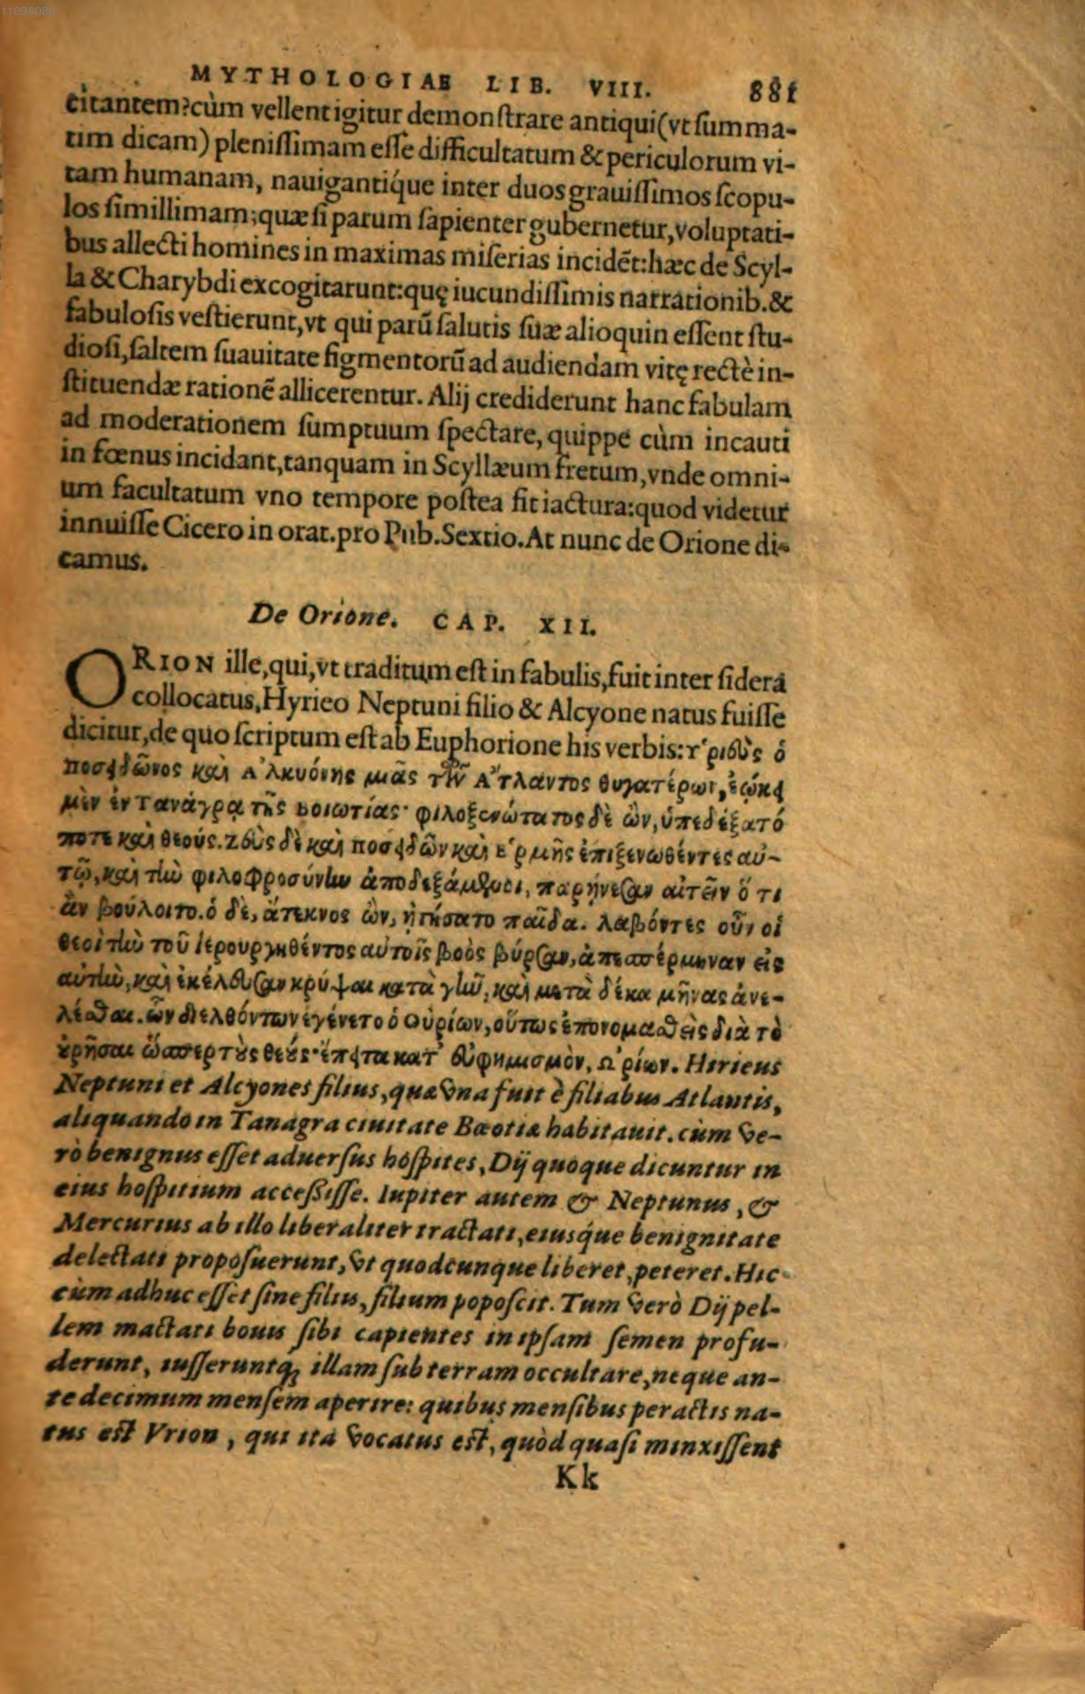 11698080
MYTHOLOGIAE LIB. VIII. 881
citantem? cùm vellent igitur demonstrare antiqui (vt summa-
tim dicam) plenissimam esse difficultatum & periculorum vi-
tam humanam, nauigantíque inter duos grauissimos scopu-
los simillimam; quæ si parum sapienter gubernetur, voluptati-
bus allecti homines in maximas miserias incidēt: hæc de Scyl-
la & Charybdi excogitarunt: quę iucundissimis narrationib. &
fabulosis vestierunt, vt qui parū salutis suæ alioquin essent stu-
diosi, saltem suauitate figmentorū ad audiendam vitę rectè in-
stituendæ rationē allicerentur. Alij crediderunt hanc fabulam
ad moderationem sumptuum spectare, quippe cùm incauti
in fœnus incidant, tanquam in Scyllæum fretum, vnde omni-
um facultatum vno tempore postea fit iactura: quod videtur
innuisse Cicero in orat. pro Pub. Sextio. At nunc de Orione di-
camus.
De Orione. CAP. XII.
ORION ille, qui, vt traditum est in fabulis, fuit inter sidera
collocatus, Hyrieo Neptuni filio & Alcyone natus fuisse
dicitur, de quo scriptum est ab Euphorione his verbis: Υ῾ριεὺς ὁ
ποσειδῶνος καὶ Α᾿λκυόνης μιᾶς τῶν Α῎τλαντος θυγατέρων, ᾤκει
μὲν ἐν Τανάγρᾳ τῆς βοιωτίας· φιλοξενώτατος δὲ ὢν, ὑπεδέξατό
ποτε καὶ θεούς. Ζεὺς δὲ καὶ ποσειδῶν καὶ Ε῾ρμῆς ἐπιξενωθέντες αὐ-
τῷ, καὶ τὴν φιλοφροσύνην ἀποδεξάμενοι, παρῄνεσαν αἰτεῖν ὅ τι
ἂν βούλοιτο. ὁ δὲ, ἄτεκνος ὢν, ᾐτήσατο παῖδα. λαβόντες οὖν οἱ
θεοὶ τὴν τοῦ ἱερουργηθέντος αὐτοῖς βοὸς βύρσαν, ἀπεσπέρμηναν εἰς
αὐτὴν, καὶ ἐκέλευσαν κρύψαι κατὰ γῆν, καὶ μετὰ δέκα μῆνας ἀνε-
λέσθαι. ὧν διελθόντων ἐγένετο ὁ Οὐρίων, οὕτως ἐπονομασθεὶς διὰ τὸ
οὐρῆσαι ὥσπερ τοὺς θεούς· ἔπειτα κατ᾽ εὐφημισμὸν, Ω᾿ρίων. Hirieus
Neptuni et Alcyones filius, quæ vna fuit è filiabus Atlantis,
aliquando in Tanagra ciuitate Bœotiæ habitauit. cùm ve-
rò benignus esset aduersus hospites, Dij quoque dicuntur in
eius hospitium accessisse. Iupiter autem & Neptunus, &
Mercurius ab illo liberaliter tractati, eiusque benignitate
delectati proposuerunt, vt quodcunque liberet, peteret. Hic
cùm adhuc esset sine filiis, filium poposcit. Tum verò Dij pel-
lem mactati bouis sibi capientes in ipsam semen profu-
derunt, iusseruntq́; illam sub terram occultare, neque an-
te decimum mensem aperire: quibus mensibus peractis na-
tus est Vrion, qui ita vocatus est, quòd quasi minxissent
Kk